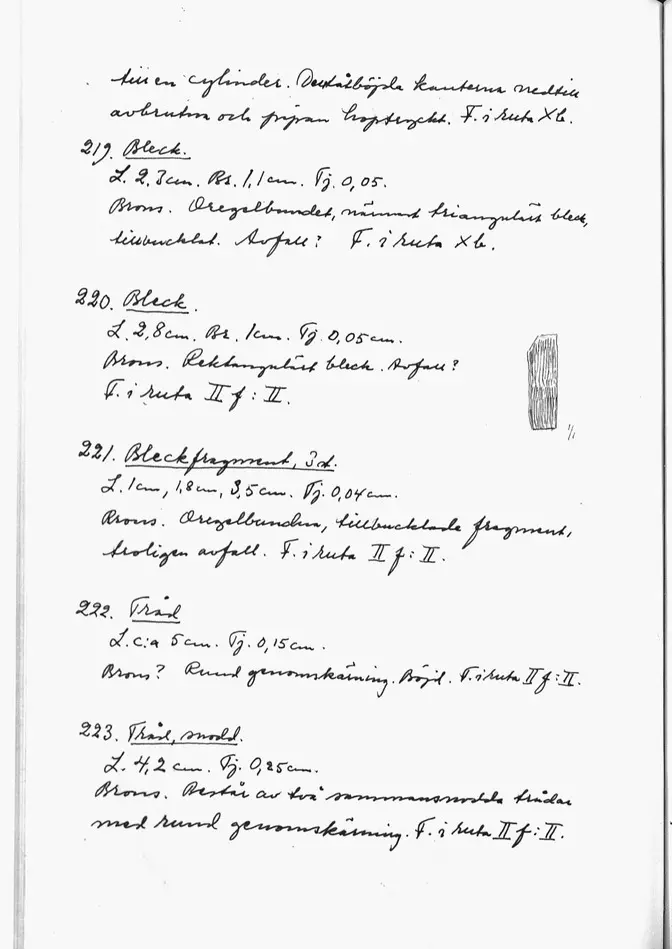 till en cylinder. De utåtböjda kanterna nedtill
avbrutna och pipan hoptryckt. F. i ruta Xb.
219. Bleck.
L. 2,3 cm. Br. 1,1 cm. Tj. 0,05.
Brons. Oregelbundet, närmast triangulärt bleck,
tillbucklat. Avfall? F. i ruta Xb.
220. Bleck.
L. 2,8 cm. Br. 1 cm. Tj. 0,05 cm.
Brons. Rektangulärt bleck. Avfall?
F. i ruta II f: II.
1/1
221. Bleckfragment, 3 st.
L. 1 cm, 1,8 cm, 3,5 cm. Tj. 0,04 cm.
Brons. Oregelbundna, tillbucklade fragment,
troligen avfall. F. i ruta II f: II.
222. Tråd
L. c:a 5 cm. Tj. 0,15 cm.
Brons? Rund genomskärning. Böjd. F. i ruta II f: II.
223. Tråd, snodd.
L. 4,2 cm. Tj. 0,25 cm.
Brons. Består av två sammansnodda trådar
med rund genomskärning. F. i ruta II f: II.